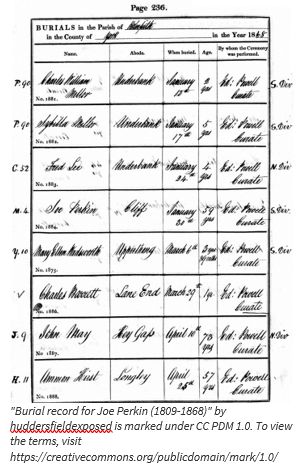 Page 236.
BURIALS in the Parish of
in the County of York in the Year 1868
Name. Abode. When buried. Age. By whom the Ceremony was performed.
P. 90 Charles William Mellor Underbank January 13th 2 yrs Ed: Powell Curate S. Div
No. 1881.
P. 90 Mellor Underbank January 17th 5 yrs Ed: Powell Curate S. Div
No. 1882.
C. 52 Ford Lee Underbank January 24th 4 yrs Ed: Powell Curate N. Div
No. 1883.
M. 4 Joe Perkin Cliff January 59 yrs Ed: Powell Curate S. Div
No. 1884.
Y. 10 Mary Ellen Wadsworth March 6th 3 yrs Ed: Powell Curate S. Div
No. 1875.
V Charles Lane End March 29th Ed: Powell Curate
No. 1886.
J. 9 John May Hey Gap April 10th 78 yrs Ed: Powell Curate N. Div
No. 1887.
H. 11 Hirst Longley April 25th 57 yrs Ed: Powell Curate
No. 1888.
"Burial record for Joe Perkin (1809-1868)" by
huddersfieldexposed is marked under CC PDM 1.0. To view
the terms, visit
https://creativecommons.org/publicdomain/mark/1.0/